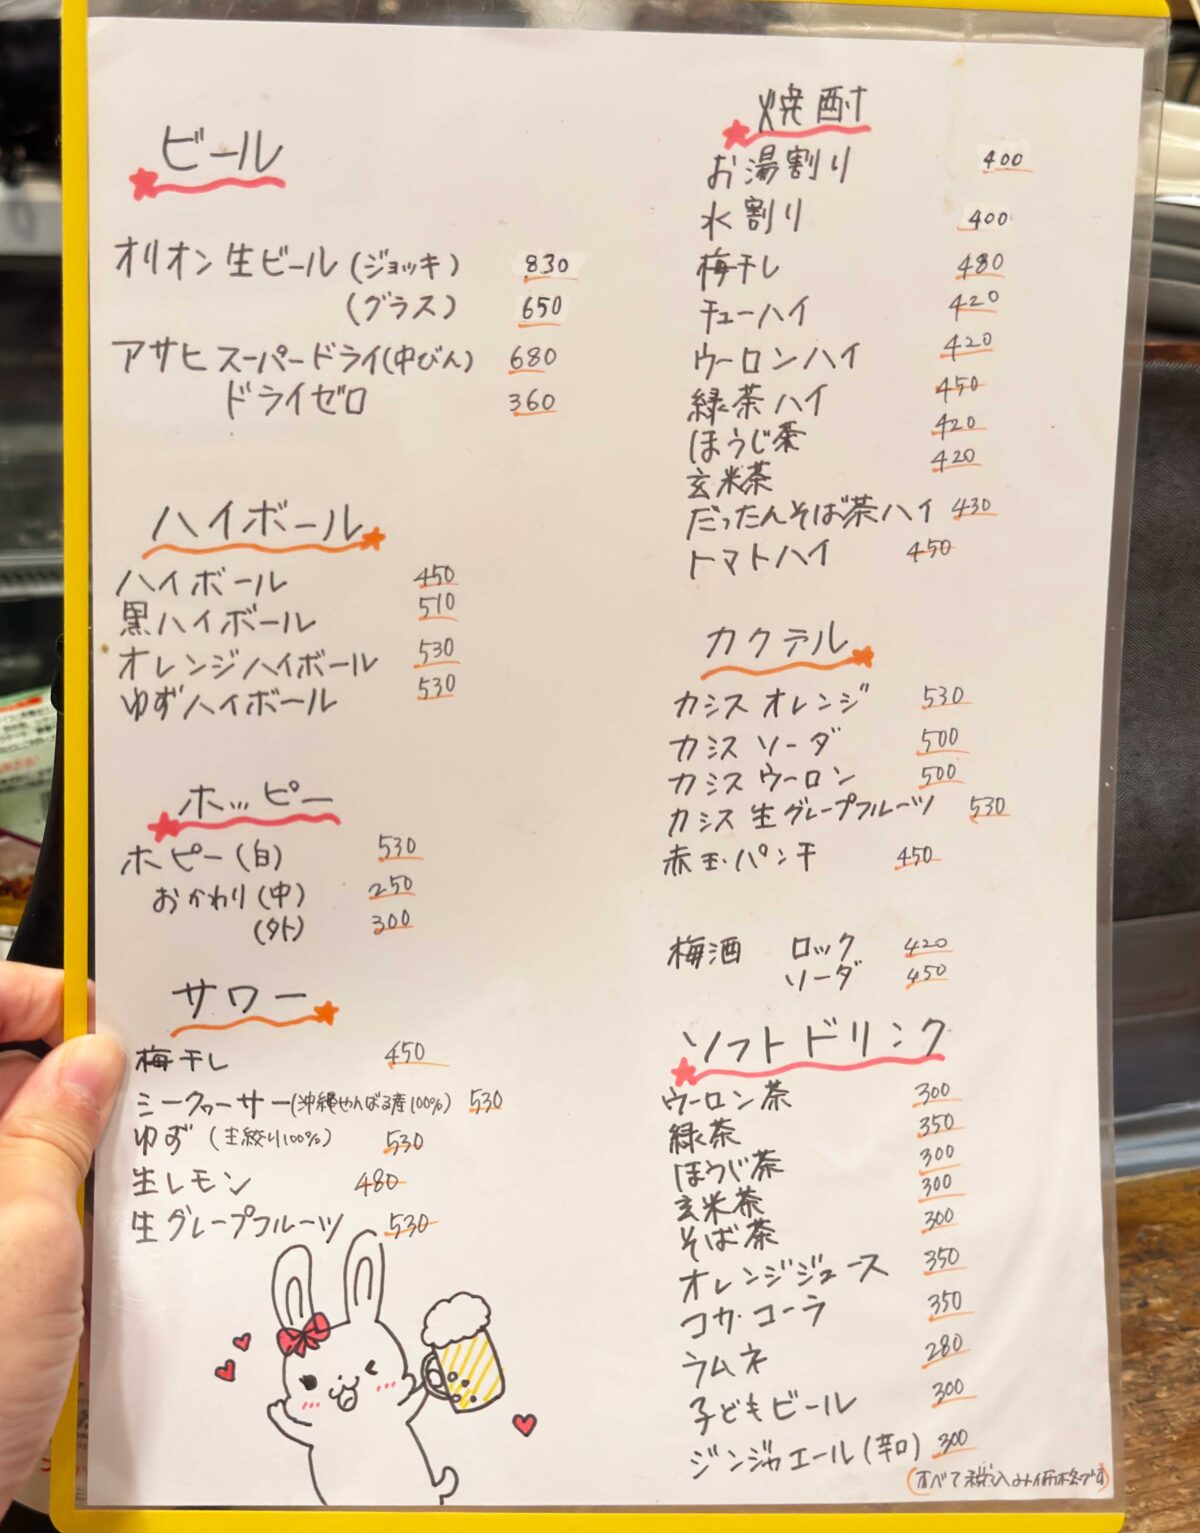 ビール
オリオン生ビール(ジョッキ) 830
(グラス) 650
アサヒスーパードライ(中びん) 680
ドライゼロ 360
ハイボール
ハイボール 450
黒ハイボール 510
オレンジハイボール 530
ゆずハイボール 530
ホッピー
ホピー(白) 530
おかわり(中) 250
(外) 300
サワー
梅干し 450
シークヮーサー(沖縄やんばる産100%) 530
ゆず(生絞り100%) 530
生レモン 480
生グレープフルーツ 530
焼酎
お湯割り 400
水割り 400
梅干し 480
チューハイ 420
ウーロンハイ 420
緑茶ハイ 450
ほうじ茶 420
玄米茶 420
だったんそば茶ハイ 430
トマトハイ 450
カクテル
カシスオレンジ 530
カシスソーダ 500
カシスウーロン 500
カシス生グレープフルーツ 530
赤玉・パンチ 450
梅酒 ロック 420
ソーダ 450
ソフトドリンク
ウーロン茶 300
緑茶 350
ほうじ茶 300
玄米茶 300
そば茶 300
オレンジジュース 350
コカ・コーラ 350
ラムネ 280
子どもビール 300
ジンジャエール(辛口) 300
(すべて税込み価格です)